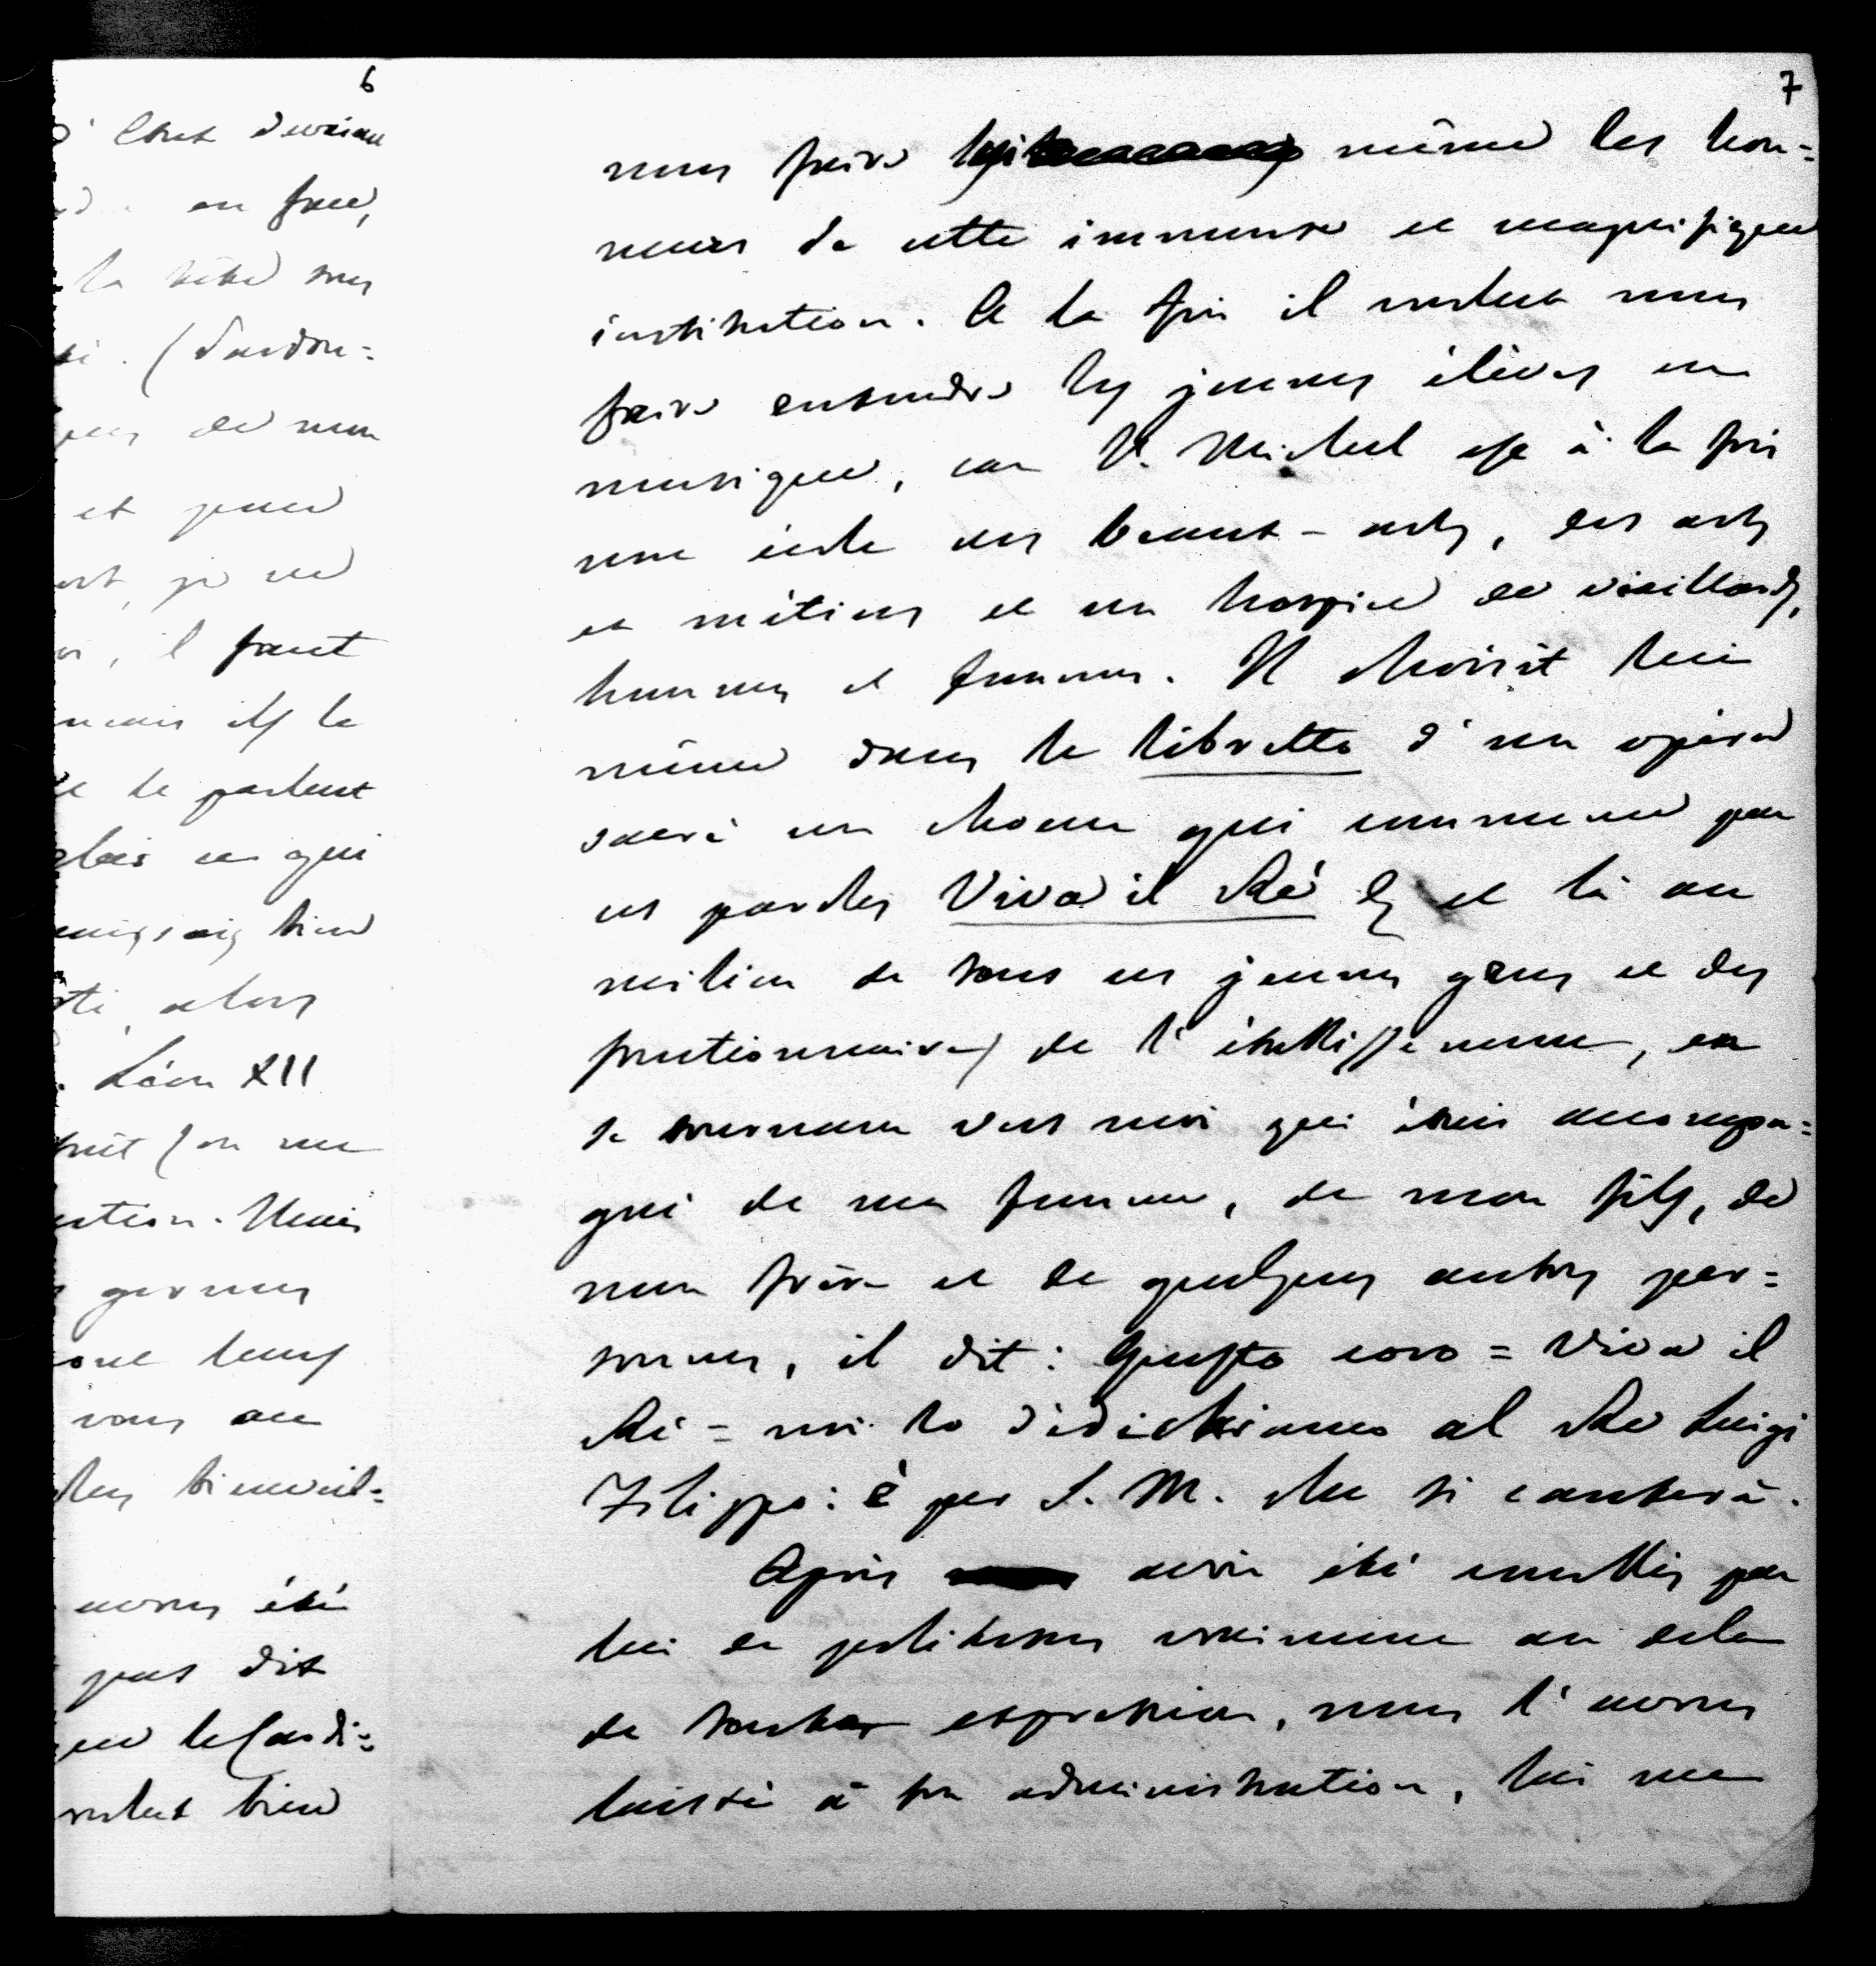 6
d' Etat devrian
en face,
la tête sous
si. (Pardon=
de mon
et pour
il faut
mais ils le
le parlent
glais ce qui
bien
alors
Léon XII
Mais
germes
tous leurs
vous au
bienveil=
avons été
pas dit
que le Cardi=
voulut bien
7
nous faire lui même les hon=
neurs de cette immense et magnifique
institution. A la fin il voulut nous
faire entendre les jeunes élèves en
musique, car St. Michel est à la fois
une école des beaux-arts, des arts
et métiers et un hospice de vieillards,
hommes et femmes. Il choisit lui
même dans le libretto d'un opéra
sacré un choeur qui commence par
ces paroles Viva il Ré & et là au
milieu de tous ces jeunes gens et des
fonctionnaires de l'établissement, en
se tournant vers moi qui étais accompa=
gné de ma femme, de mon fils, de
mon frère et de quelques autres per=
sonnes, il dit: Questo coro = Viva il
Ré = noi lo dedichiamo al Ré Luigi
Filippo: è per S. M. che si canterà.
Après avoir été comblés par
lui de politesses vraiment au dela
de toute expression, nous l'avons
laissé à son administration, lui me